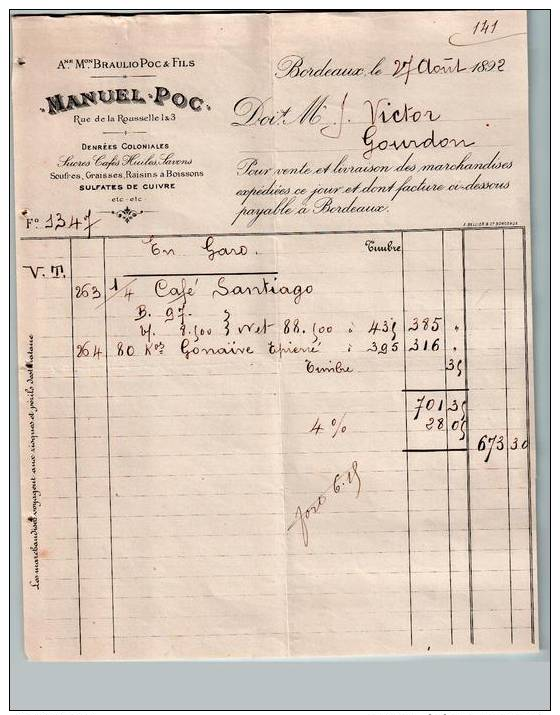 141
Ane Mon BRAULIO POC & FILS
MANUEL POC
Rue de la Rousselle 1 & 3
DENRÉES COLONIALES
Sucres Cafés Huiles, Savons
Soufres, Graisses, Raisins à Boissons
SULFATES DE CUIVRE
etc - etc
Fo 1347
Bordeaux, le 27 Août 1892
Doit M J. Victor
Gourdon
Pour vente et livraison des marchandises
expédiées ce jour et dont facture ci-dessous
payable à Bordeaux.
En Gare. Timbre
V. T.
263 1/4 Café Santiago
B. 97.
8.500 } Net 88.500 à 435 385 "
264 80 Kos Gonaïve à 395 316 "
Timbre 35
701 35
4 % 28 05
673 30
6.15
Les marchandises voyagent aux risques et périls du destinataire